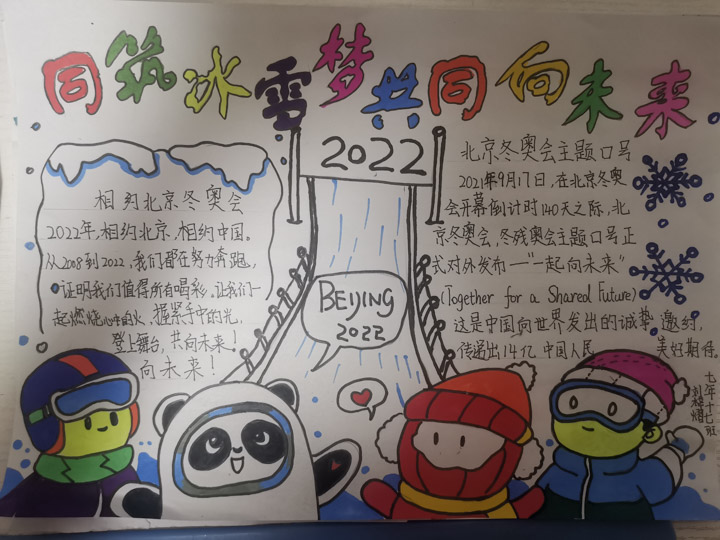 同筑冰雪梦共同向未来
2022
相约北京冬奥会
2022年,相约北京,相约中国。
从2008到2022,我们都在努力奔跑,
证明我们值得所有喝彩,让我们一
起燃烧心中的火,握紧手中的光,
登上舞台,共向未来!
向未来!
北京冬奥会主题口号
2021年9月17日,在北京冬奥
会开幕倒计时140天之际,北
京冬奥会,冬残奥会主题口号正
式对外发布—“一起向未来”
(Together for a Shared Future)
这是中国向世界发出的诚挚邀约,
传递出14亿中国人民美好期待。
BEIJING
2022
七年十七班